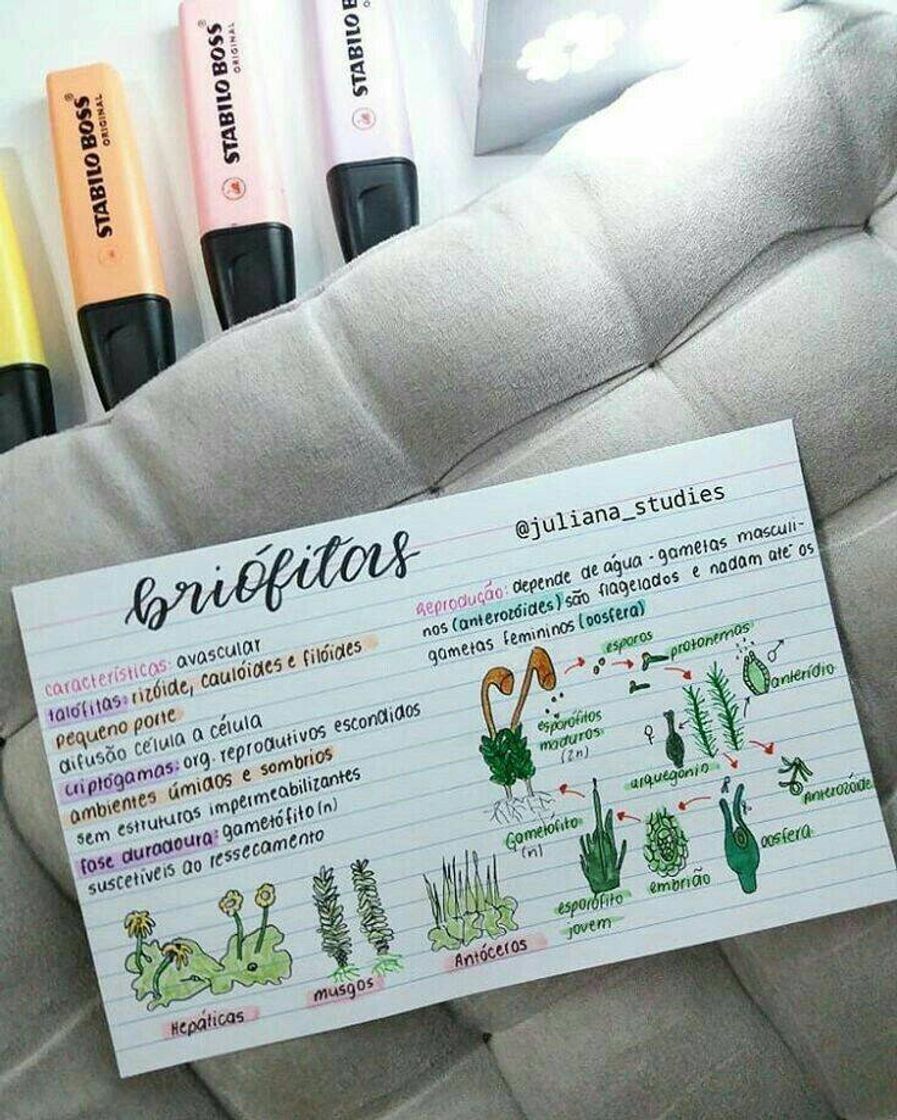 STABILO BOSS®
ORIGINAL
STABILO BOSS®
ORIGINAL
STABILO BOSS
ORIGINAL
@juliana_studies
briófitas
características: avascular
talófitas: rizóide, caulóides e filóides
pequeno porte
difusão célula a célula
criptógamas: org. reprodutivos escondidos
ambientes úmidos e sombrios
sem estruturas impermeabilizantes
fase duradoura: gametófito (n)
suscetíveis ao ressecamento
Reprodução: depende de água - gametas masculi-
nos (anterozóides) são flagelados e nadam até os
gametas femininos (oosfera)
esporos
protonemas
♂
anterídio
esporófitos
maduros
(2n)
♀
arquegônio
Anterozóide
Gametófito
(n)
oosfera
embrião
esporófito
jovem
Hepáticas
musgos
Antóceros